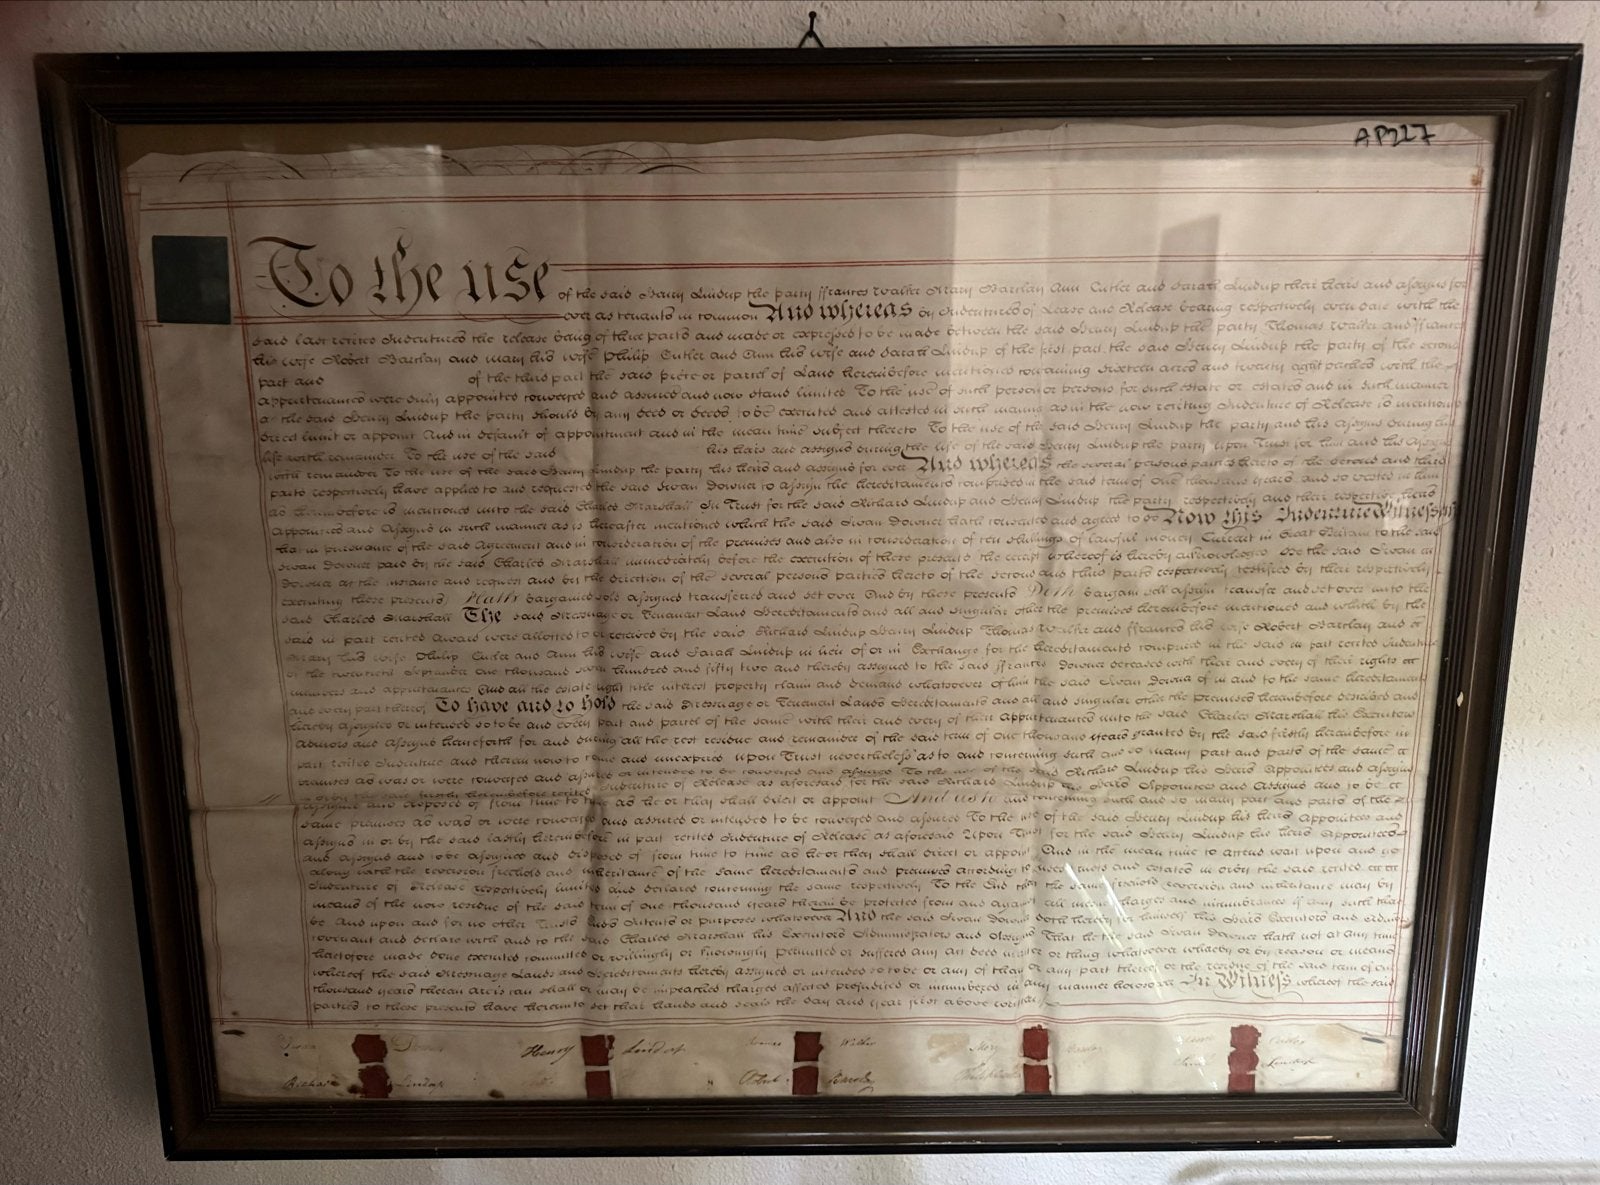 AP227
To the use of the said Henry Lindup the party ffrances Walker Mary Barclay Ann Cutler and Sarah Lindup their heirs and assigns for
ever as tenants in common And whereas by Indentures of Lease and Release bearing respectively even date with the
said last recited Indentures the release being of three parts and made or expressed to be made between the said Henry Lindup the party Thomas Walker and ffrances
his wife Robert Barclay and Mary his wife Philip Cutler and Ann his wife and Sarah Lindup of the first part the said Henry Lindup the party of the second
part and of the third part the said piece or parcel of Land hereinbefore mentioned containing sixteen acres and twenty eight perches with the
appurtenances were duly appointed conveyed and assured and now stand limited To the use of such person or persons for such estate or estates and in such manner
as the said Henry Lindup the party should by any deed or deeds to be executed and attested in such manner as in the now reciting Indenture of Release is mentioned
direct limit or appoint And in default of appointment and in the mean time subject thereto To the use of the said Henry Lindup the party and his assigns during his
life with remainder To the use of the said his heirs and assigns during the life of the said Henry Lindup the party upon Trust for him and his assigns
with remainder To the use of the said Henry Lindup the party his heirs and assigns for ever And whereas the several persons parties hereto of the second and third
parts respectively have applied to and requested the said Swan Downer to assign the hereditaments comprised in the said term of one thousand years and so vested in him
as hereinbefore is mentioned unto the said Charles Marshall In Trust for the said Richard Lindup and Henry Lindup the party respectively and their respective heirs
appointees and Assigns in such manner as is hereafter mentioned which the said Swan Downer hath consented and agreed to do Now this Indenture Witnesseth
that in pursuance of the said Agreement and in consideration of the premises and also in consideration of ten shillings of lawful money Current in Great Britain to the said
Swan Downer paid by the said Charles Marshall immediately before the execution of these presents the receipt whereof is hereby acknowledged He the said Swan
Downer at the instance and request and by the direction of the several persons parties hereto of the second and third parts respectively testified by their respectively
executing these presents Hath bargained sold assigned transferred and set over And by these presents Doth bargain sell assign transfer and set over unto the
said Charles Marshall The said Messuage or Tenement Land Hereditaments and all and singular other the premises hereinbefore mentioned and which by the
said in part recited Award were allotted to or received by the said Richard Lindup Henry Lindup Thomas Walker and ffrances his wife Robert Barclay and
Mary his wife Philip Cutler and Ann his wife and Sarah Lindup in lieu of or in Exchange for the hereditaments comprised in the said in part recited Indenture
of the twentieth September one thousand seven hundred and fifty two and thereby assigned to the said ffrances Downer deceased with their and every of their rights
members and appurtenances And all the estate right title interest property claim and demand whatsoever of him the said Swan Downer of in and to the same hereditaments
and every part thereof To have and to hold the said Messuage or Tenement Lands Hereditaments and all and singular other the premises hereinbefore described and
hereby assigned or intended so to be and every part and parcel of the same with their and every of their appurtenances unto the said Charles Marshall his Executors
Admors and Assigns henceforth for and during all the rest residue and remainder of the said term of one thousand years granted by the said firstly hereinbefore in
part recited Indenture and therein now to come and unexpired upon Trust nevertheless as to and concerning such and so many part and parts of the same
premises as was or were conveyed and assured or intended to be conveyed and assured To the use of the said Richard Lindup his Heirs Appointees and Assigns
or by the said firstly hereinbefore recited Indenture of Release as aforesaid for the said Richard Lindup his Heirs Appointees and Assigns and to be
assigned and disposed of from time to time as he or they shall direct or appoint And as to and concerning such and so many part and parts of the
same premises as was or were conveyed and assured or intended to be conveyed and assured To the use of the said Henry Lindup his heirs appointees and
assigns in or by the said lastly hereinbefore in part recited Indenture of Release as aforesaid Upon Trust for the said Henry Lindup his heirs Appointees
and assigns and to be assigned and disposed of from time to time as he or they shall direct or appoint And in the mean time to attend wait upon and go
along with the reversion freehold and inheritance of the same hereditaments and premises according to uses trusts and estates in or by the said recited
Indenture of Release respectively limited and declared concerning the same respectively To the End that the same freehold reversion and inheritance may by
means of the now residue of the said term of one thousand years therein be protected from and against all mesne charges and incumbrances if any such there
be And upon and for no other Trusts Ends Intents or purposes whatsoever And the said Swan Downer doth hereby for himself his Heirs Executors and Admors
covenant and declare with and to the said Charles Marshall his Executors Administrators and Assigns That he the said Swan Downer hath not at any time
heretofore made done executed committed or willingly or knowingly permitted or suffered any act deed matter or thing whatsoever whereby or by reason or means
whereof the said Messuage Lands and Hereditaments hereby assigned or intended so to be or any of them or any part thereof or the residue of the said term of one
thousand years therein are is can shall or may be impeached charged affected prejudiced or incumbered in any manner howsoever In Witness whereof the said
parties to these presents have hereunto set their hands and seals the day and year first above written
Swan Downer Henry Lindup Walker Mary Cutler
Richard Lindup Robert Barclay Lindup